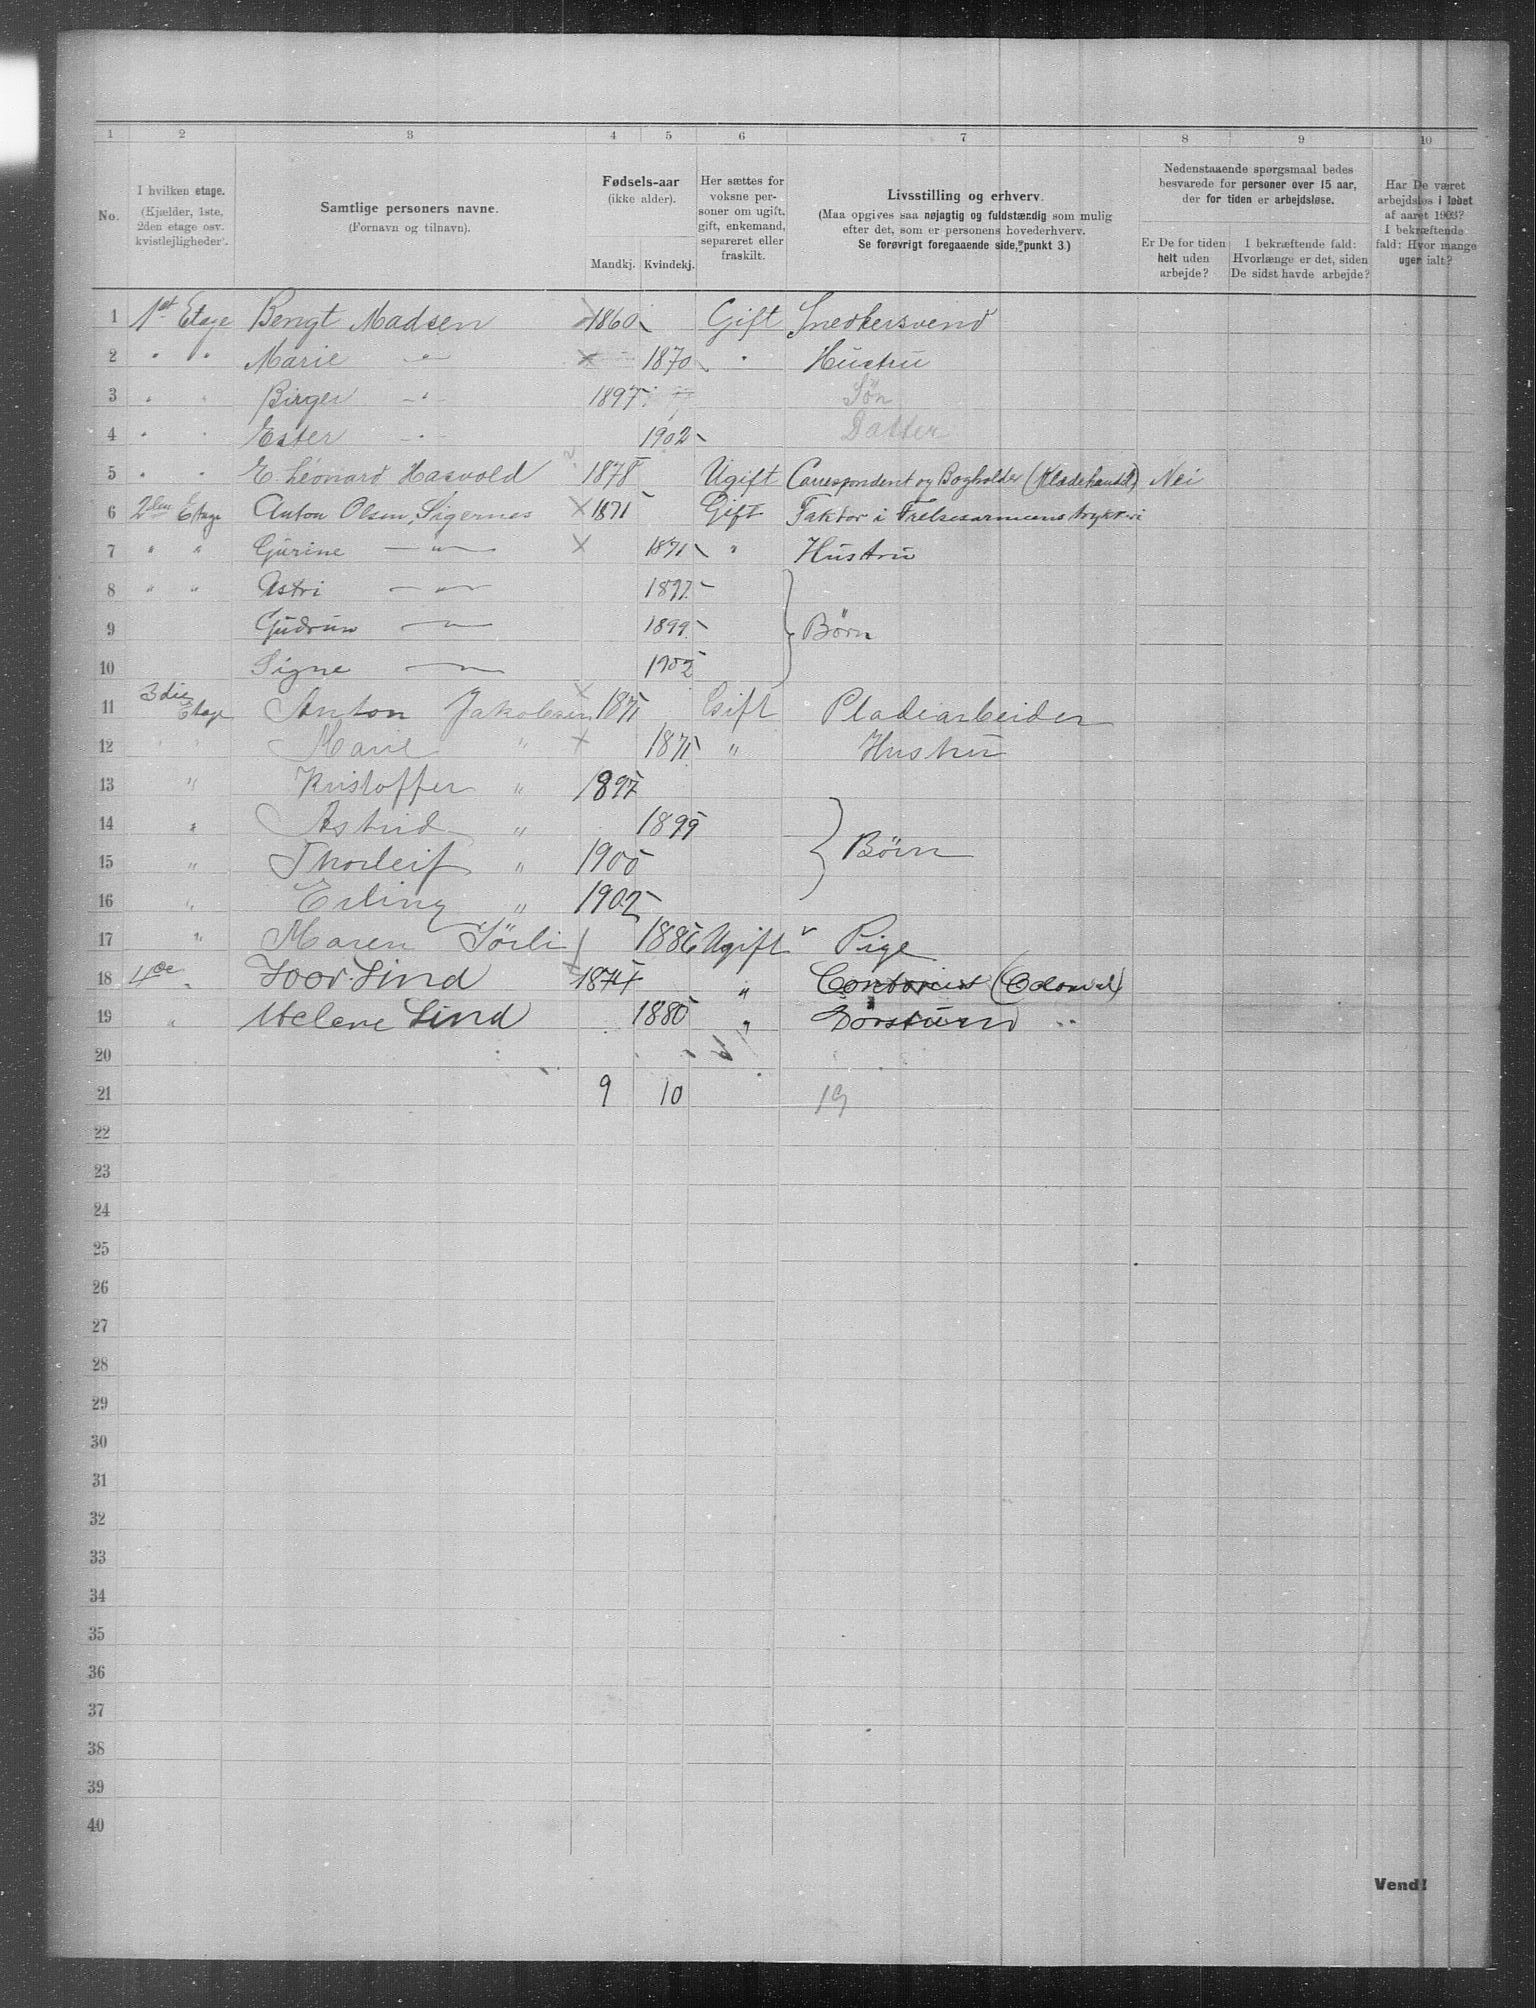 1 2 3 4 5 6 7 8 9 10
No.
I hvilken etage.
(Kjælder, 1ste,
2den etage osv.
kvistleiligheder).
Samtlige personers navne.
(Fornavn og tilnavn).
Fødsels-aar
(ikke alder).
Mandkj. Kvindekj.
Her sættes for
voksne per-
soner om ugift,
gift, enkemand,
separeret eller
fraskilt.
Livsstilling og erhverv.
(Maa opgives saa nøjagtig og fuldstændig som mulig
efter det, som er personens hovederhverv.
Se forøvrigt foregaaende side, punkt 3.)
Nedenstaaende spørgsmaal bedes
besvarede for personer over 15 aar,
der for tiden er arbejdsløse.
Er De for tiden
helt uden
arbejde?
I bekræftende fald:
Hvorlænge er det, siden
De sidst havde arbejde?
Har De været
arbejdsløs i løbet
af aaret 1903?
I bekræftende
fald: Hvor mange
uger ialt?
1 1st Etage Bengt Madsen 1860 Gift Snedkersvend
2 " " Marie " 1870 " Hustru
3 " " Birger " 1897 Søn
4 " " Ester " 1902 Datter
5 " " E. Leonard Hasvold 1878 Ugift Correspondent og Bogholder (Kladehandel) Nei
6 2den Etage Anton Olsen, Sigernes 1871 Gift Faktor i Frelsesarmeens trykkeri
7 " " Gurine " 1871 " Hustru
8 " " Astri " 1897
9 Gudrun " 1899 Børn
10 Signe 1902
11 3die Etage Anton Jakobsen 1871 Gift Pladearbeider
12 " " Marie " 1871 " Hustru
13 " Kristoffer " 1897
14 " Astrid " 1899
15 " Thorleif " 1900 Børn
16 " Erling " 1902
17 " Maren Sörli 1886 Ugift Pige
18 4de " Ivar Lind 1874 " Contorist (Colonial)
19 " Helene Lind 1880 "
20
21 9 10 19
22
23
24
25
26
27
28
29
30
31
32
33
34
35
36
37
38
39
40
Vend!